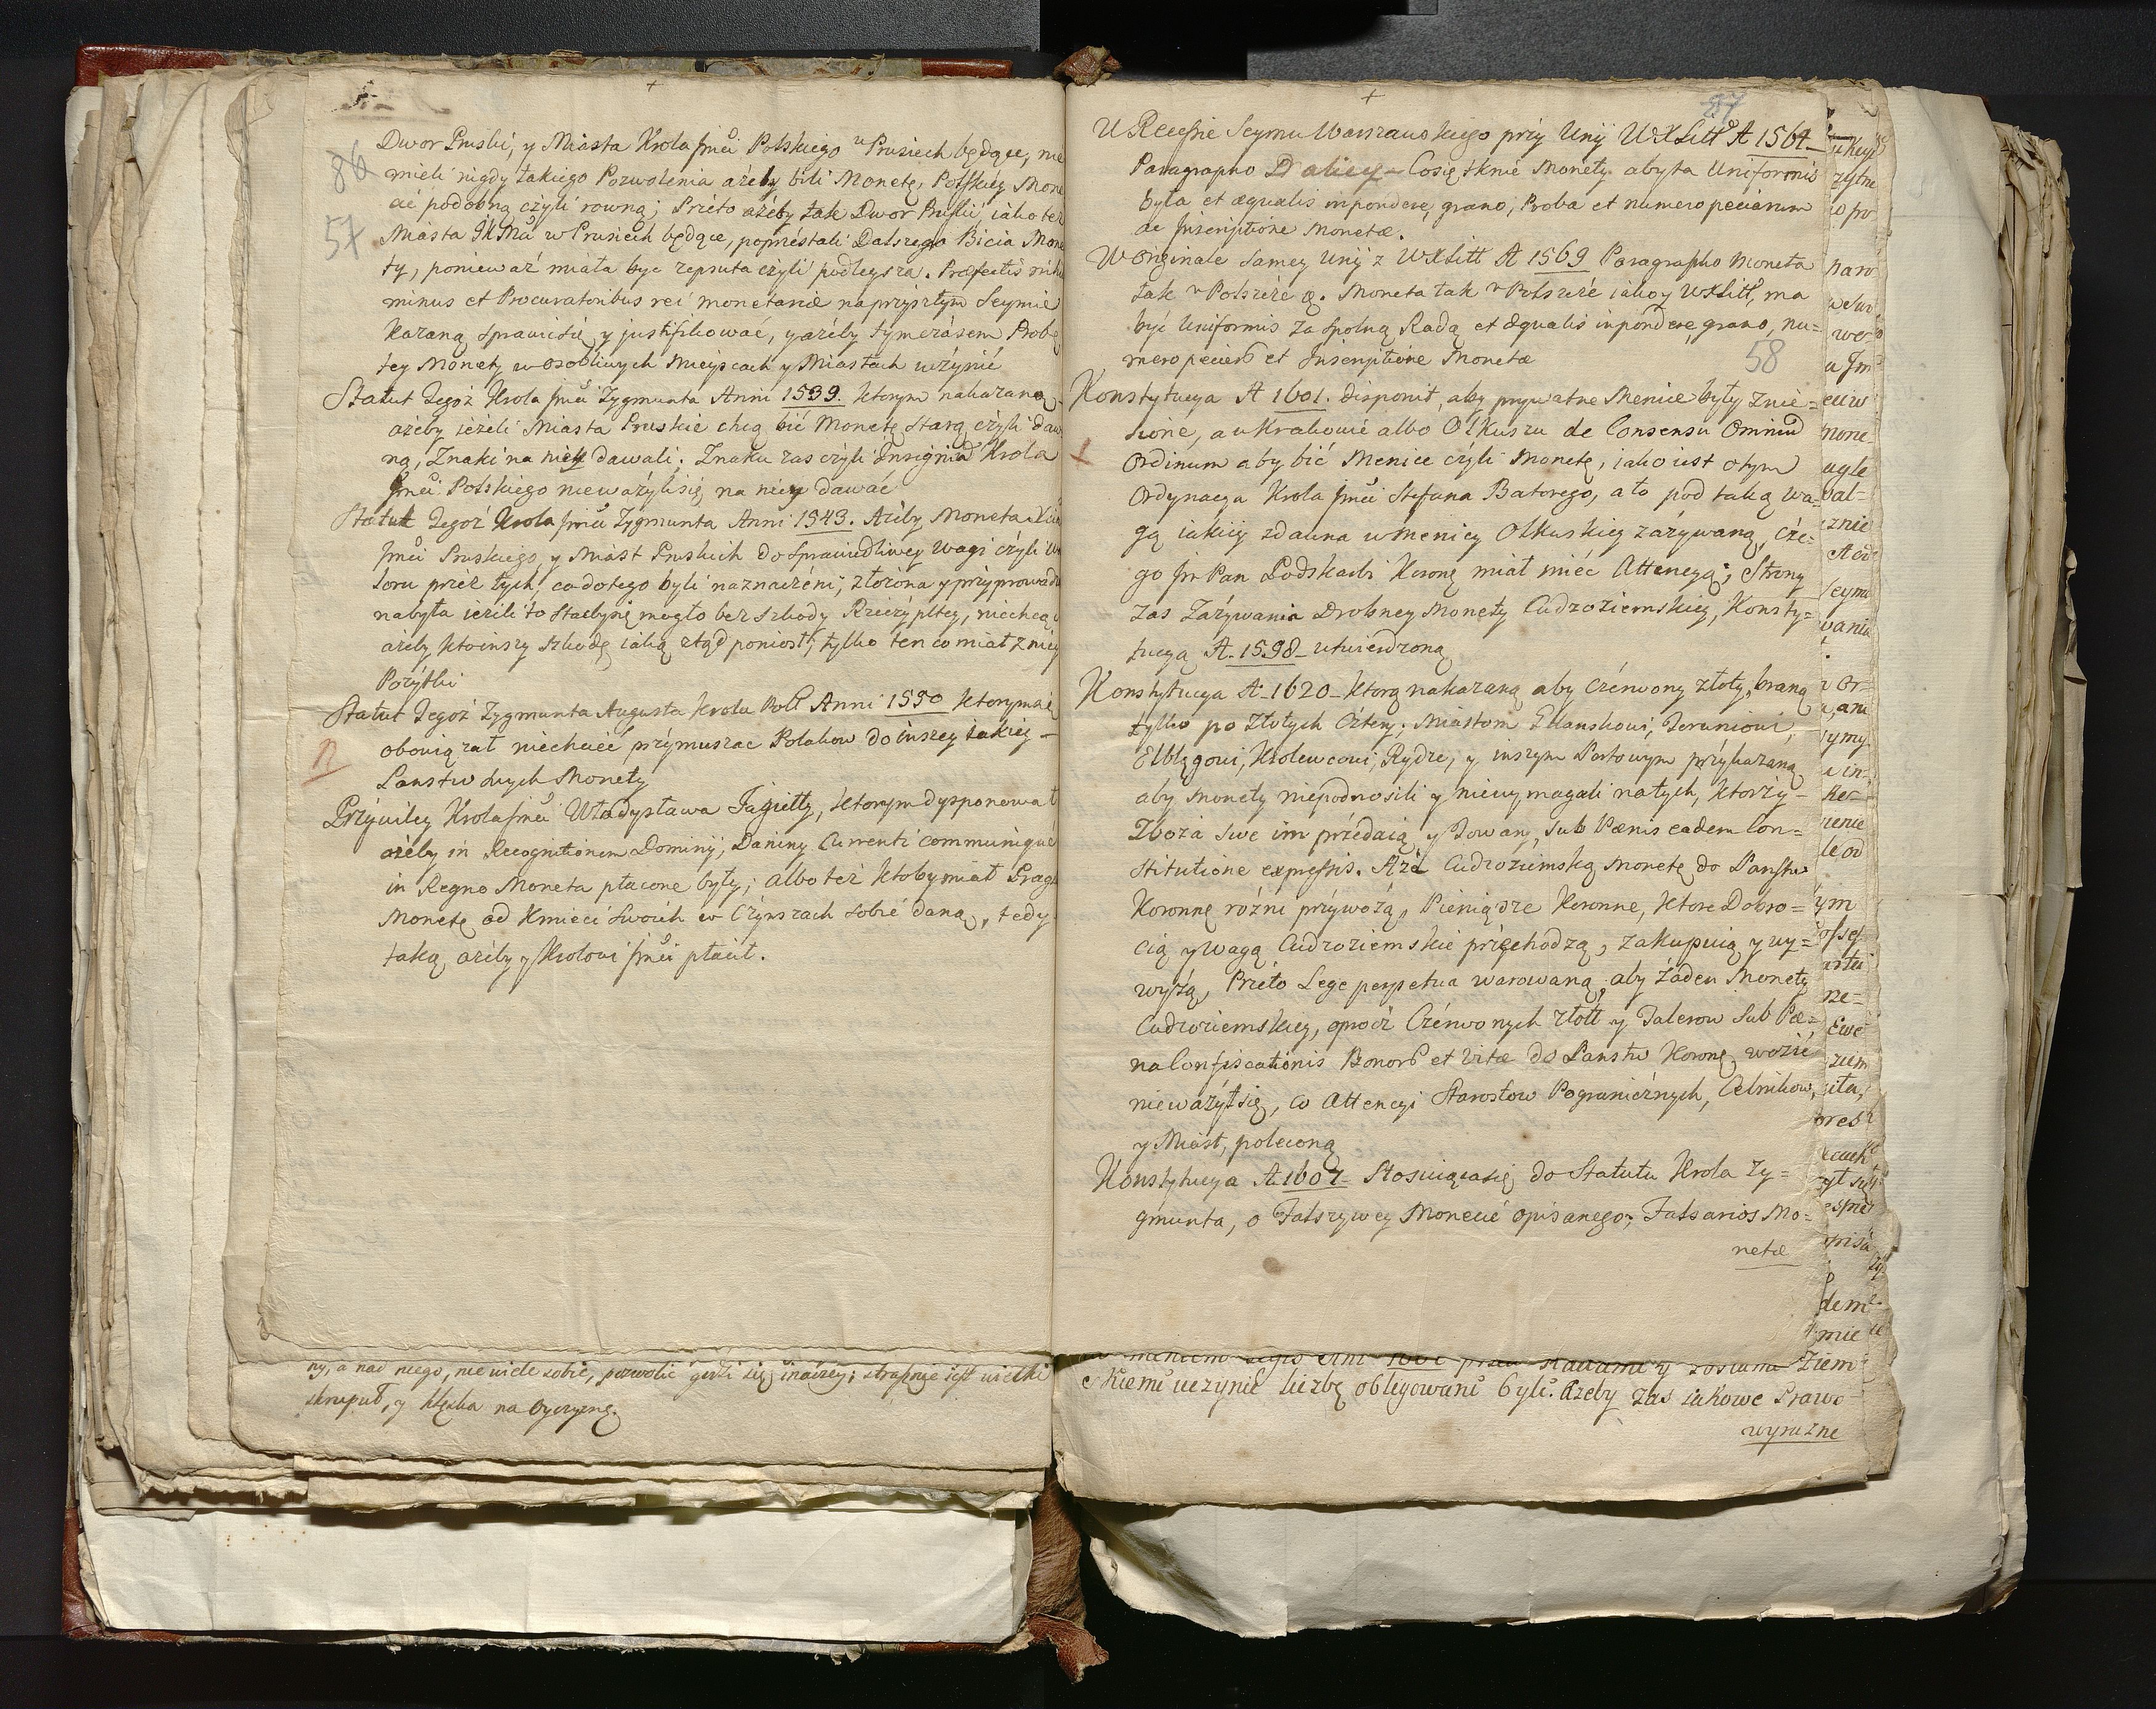 +
86
57
Dwor Pruski, y Miasta Krola Jmći Polskiego w Prusiech będące, nie
mieli nigdy takiego Pozwolenia ażeby bili Monetę, Polskiey Mone
ċie podobną czyli rowną; Przeto ażeby tak Dwor Pruski, iako też
Miasta JKMći w Prusiech będące, poprzestali Dalszego Bicia Mone
ty, ponieważ miała byc zepsuta czyli podleysza. Præfectis nihi
minus et Procuratoribus rei monetariæ na przyszłym Seymie
kazaną sprawić się y justifikować, y ażeby tymczasem Probę
tey Monety w osobliwych mieyscach y Miastach uczynić
Statut Tegoż Krola Jmći Zygmunta Anni 1539. ktorym nakazano
ażeby ieżeli Miasta Pruskie chcą bić Monetę Starą czyli daw
ną, Znaki na niey dawali; Znaku zas czyli Insigniu Krola
Jmći Polskiego nieważyli się na niey dawać
Statut Tegoż Krola Jmći Zygmunta Anni 1543. Ażeby Moneta Xcia
Jmći Pruskiego, y Miast Pruskich do Sprawiedliwey Wagi czyli Wa
loru przez tych, co do tego byli naznaczeni, złożona y przyprowadzo
na była ieżeli to stać by się mogło bez szkody Rzeczypltey, niechcąc
ażeby kto inszy szkodę iaką ztąd poniosł, tylko ten co miał z niey
Pożytki
Statut Tegoż Zygmunta Augusta Krola Pol Anni 1550 ktorym się
obowiązał niechcieć przymuszac Polakow do inszey iakiey
Panstw swych Monety
Przywiley Krola Jmći Władysława Jagiełły, ktorym dysponował
ażeby in Recognitionem Dominij, Daniny Currenti communique
in Regno Moneta płacone były; albo też ktoby miał Prag
Monetę od Kmieci swoich w Czynszach sobie daną, tedy
taką ażeby y Krolowi Jmći płacił.
ny, a nad niego, nie wiele sobie, pozwolić gdzi się inaczey; strapnie jest wielki
skrupuł, y klęska na Oyczyznę.
+
57
W Recessie Seymu Warszawskiego przy Unij WXLitt A 1564
Paragrapho Daliey – Co się tknie Monety aby ta Uniformis
była et æqualis in pondere, grano, Proba et numero peciarum
ac Inscriptione Monetæ.
W originale samey Unij z WXLitt A 1569 Paragrapho Moneta
tak w Polszcze &. Moneta tak w Polszcze iako y WXLitt, ma
być Uniformis za spolną Radą et æqualis in pondere, grano, nu=
mero pecierum et Inscriptione Monetæ
58
Konstytucya A 1601. disponit, aby prywatne Menice były znie=
sione, a w Krakowie albo Olkuszu de Consensu Omnium
Ordinum aby bić Menice czyli Monetę, iako iest o tym
Ordynacya Krola Jmći Stefana Batorego, a to pod taką Wa=
gą iakiey zdawna w menicy Olkuskiey zażywaną, Cze=
go Jm Pan Podskarbi Koronę miał mieć Attencyą; Strony
zas Zażywania Drobney Monety Cudzoziemskiey, Konsty=
tucyą A. 1598 – utwierdzoną
Konstytucya A – 1620 – ktorą nakazaną aby Czerwony złoty, braną
tylko po Złotych Cztery; Miastom Gdanskowi, Toruniowi,
Elblągowi, Krolewcowi, Rydze, y inszym Portowym przykazaną
aby Monety niepodnosili y niewymagali na tych, ktorzy –
Zboża swe im przedaią, y Towary, sub Pænis eadem Con=
stitutione expressis. A że Cudzoziemską Monetę do Panstw
Koronnę rożni przywożą, Pieniądze Koronne, ktore Dobro=
cią y Wagą Cudzoziemskie przechodzą, zakupuią y wy=
wożą, Przeto Lege perpetua warowaną; aby żaden Monety
Cudzoziemskiey, oprocz Czerwonych złott y Talerow sub Pæ=
na Confiscationis Bonor et Vitæ do Panstw Koronę wozić
nieważył się, Co Attencyi Starostow Pogranicznych, Celnikow,
y Miast, poleconą
Konstytucya A 1607 – Stosuiąca się do Statutu Krola Zy=
gmunta, o Fałszywey Monecie opisanego; Falsarios Mo=
netæ
skiemu uczynić liczbę obligowani byli. Ażeby zas iakowe Prawo
wyrazne